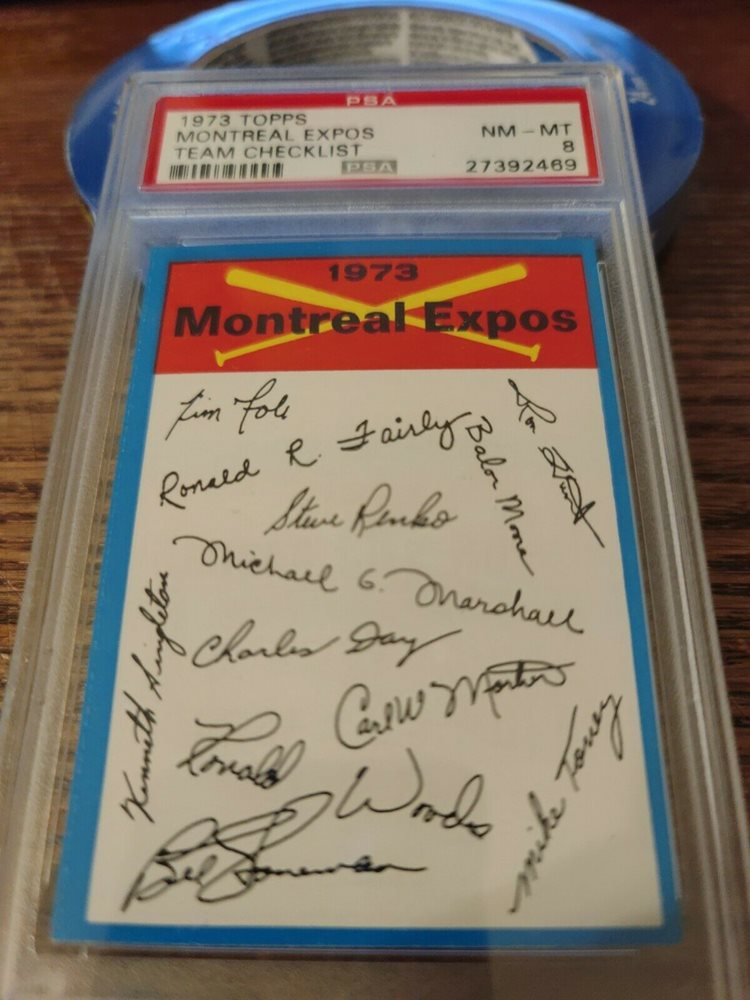 PSA
1973 TOPPS
MONTREAL EXPOS
TEAM CHECKLIST
NM - MT
8
PSA
27392469
1973
Montreal Expos
Tim Foli
Ronald R. Fairly
Balor Moore
Ron Hunt
Steve Renko
Michael G. Marshall
Kenneth Singleton
Charles Day
Carl W Morton
Ronald Woods
Mike Torrez
Bill Stoneman